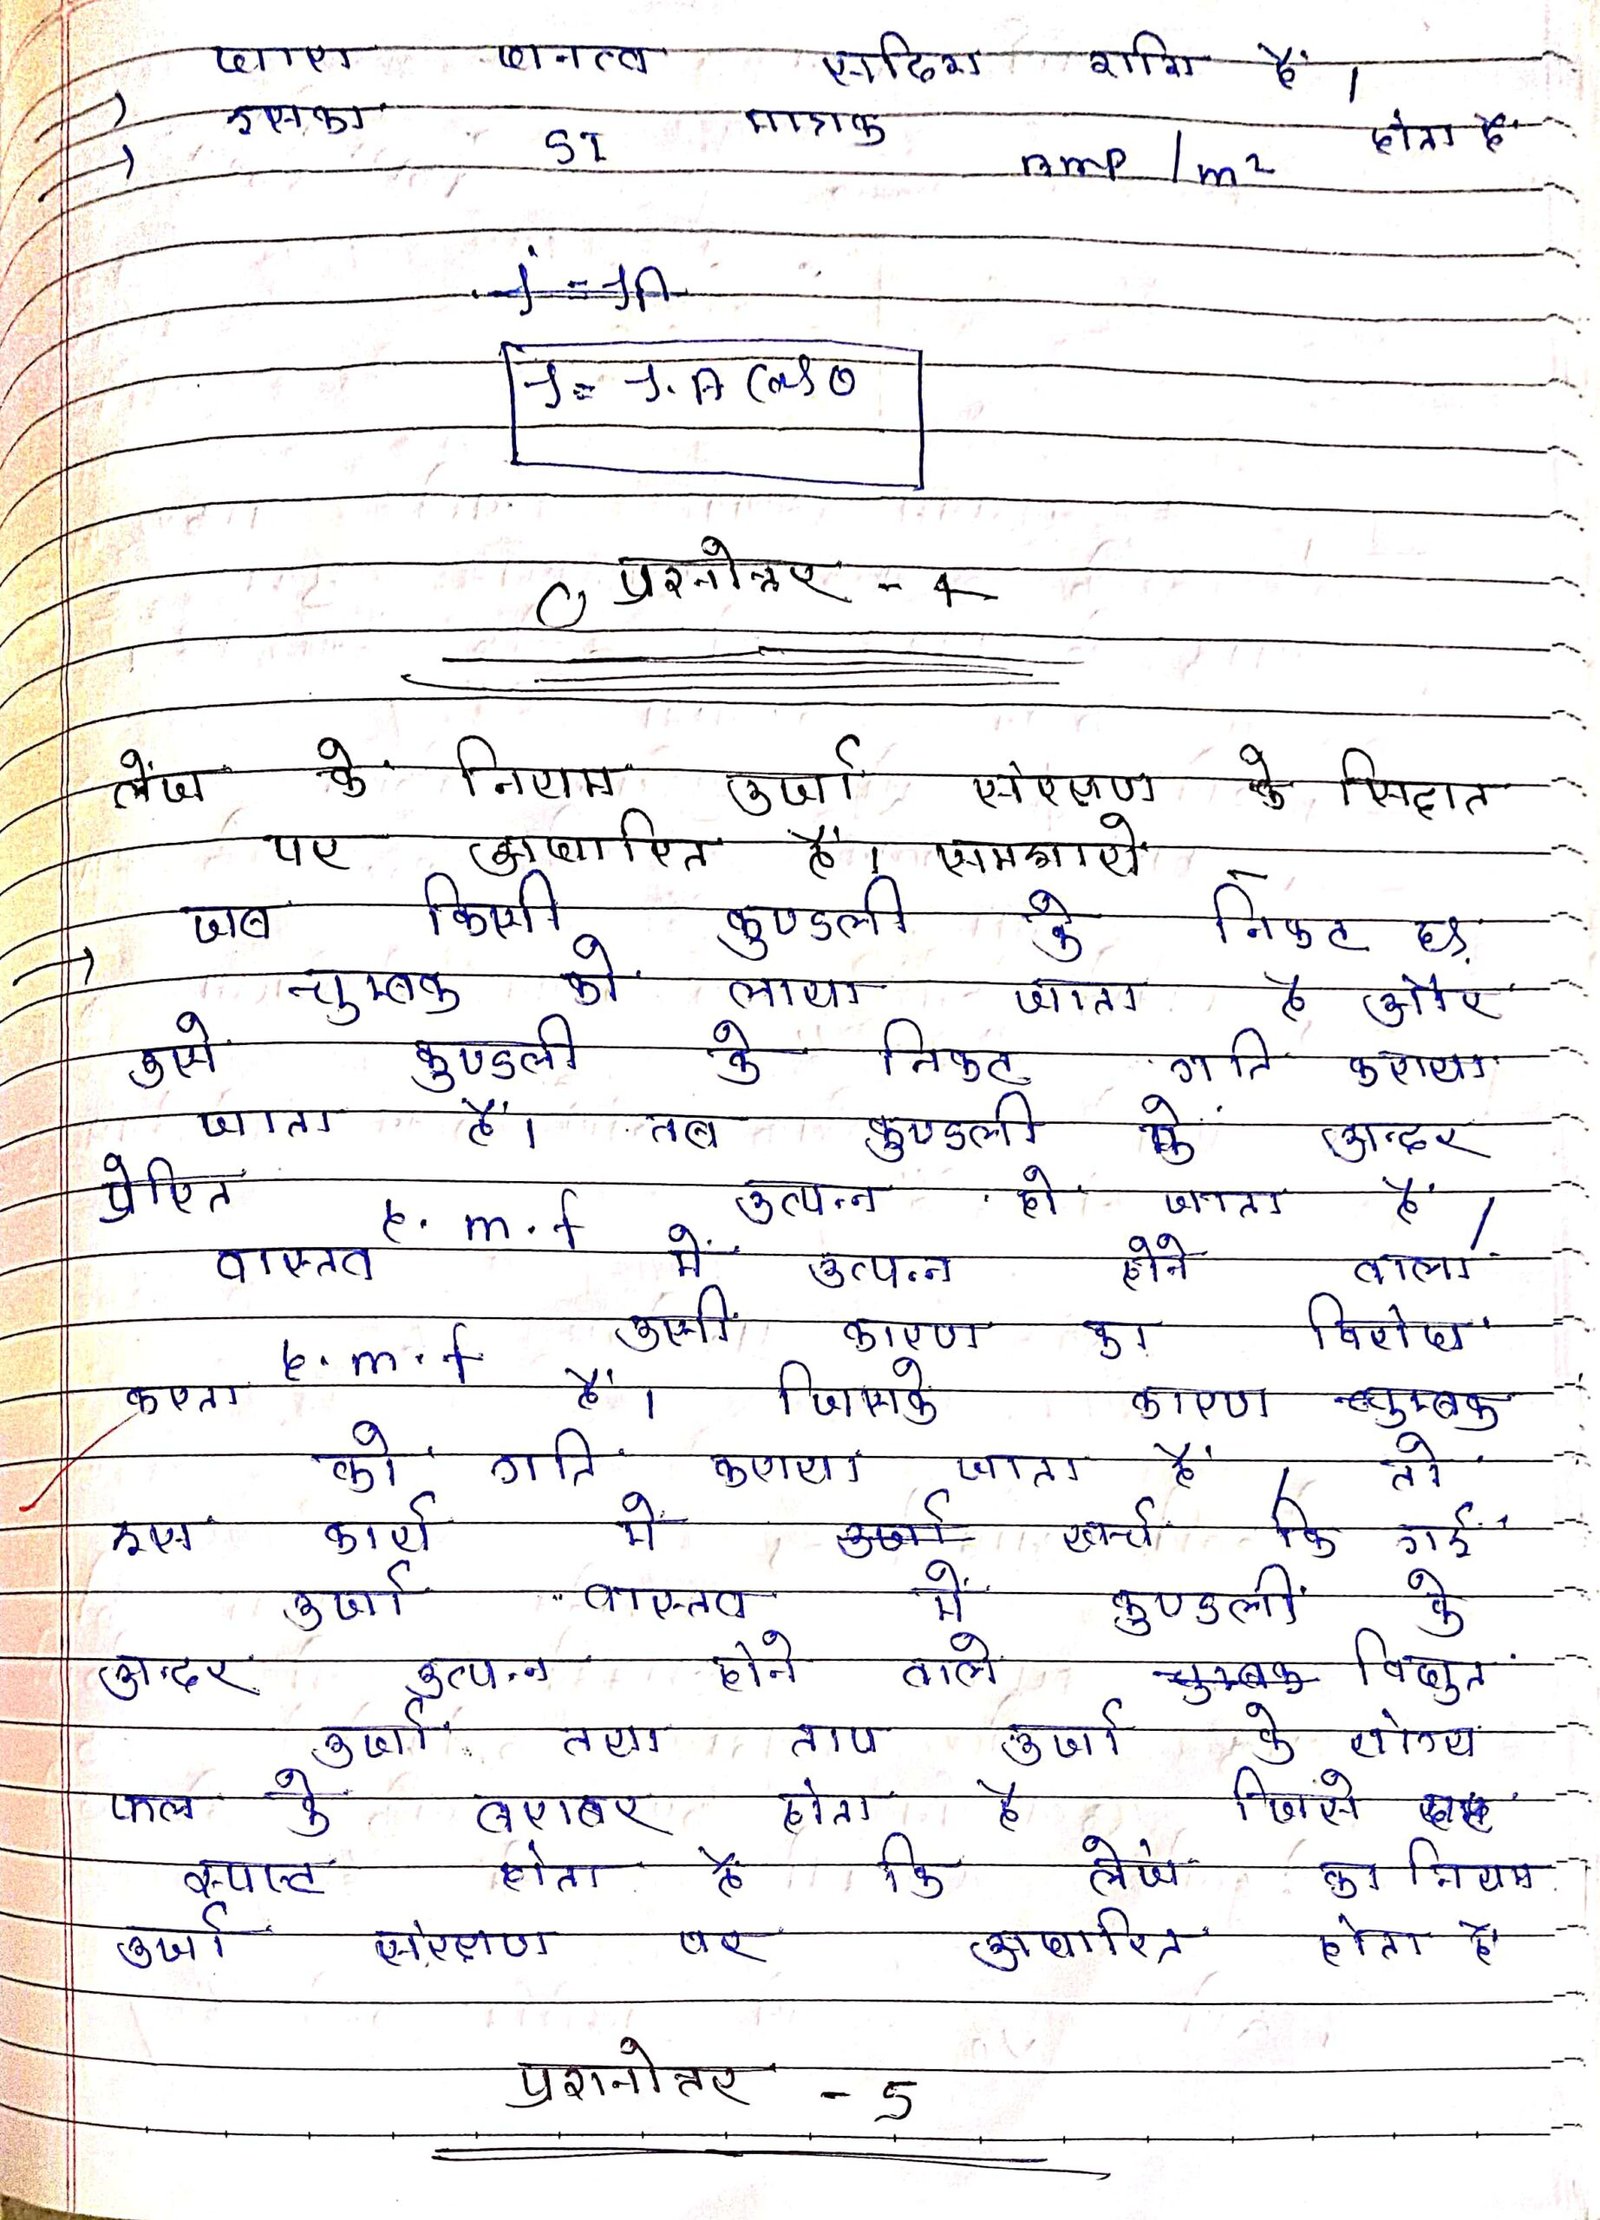 धारा घनत्व सदिश राशि है।
इसका SI मात्रक amp/m² होता है
j = JA
j = J.A Cosθ
प्रश्नोत्तर - 4
लेंज के नियम उर्जा संरक्षण के सिद्दात
पर आधारित है। समझाये
जब किसी कुण्डली के निकट छड़
चुम्बक को लाया जाता है और
उसे कुण्डली के निकट गति कराया
जाता है। तब कुण्डली के अन्दर
प्रेरित e.m.f उत्पन्न हो जाता है/
वास्तव में उत्पन्न होने वाला
e.m.f उसी कारण का विरोध
करता है। जिसके कारण चुम्बक
को गति कराया जाता है, तो
इस कार्य मे उर्जा खर्च कि गई
उर्जा वास्तव में कुण्डली के
अन्दर उत्पन्न होने वाले चुम्बक विद्युत
उर्जा तथा ताप उर्जा के योग्य
फल के बराबर होता है जिसे
स्पष्ट होता है कि लेंज का नियम
उर्जा संरक्षण पर आधारित होता है
प्रशनोतर - 5